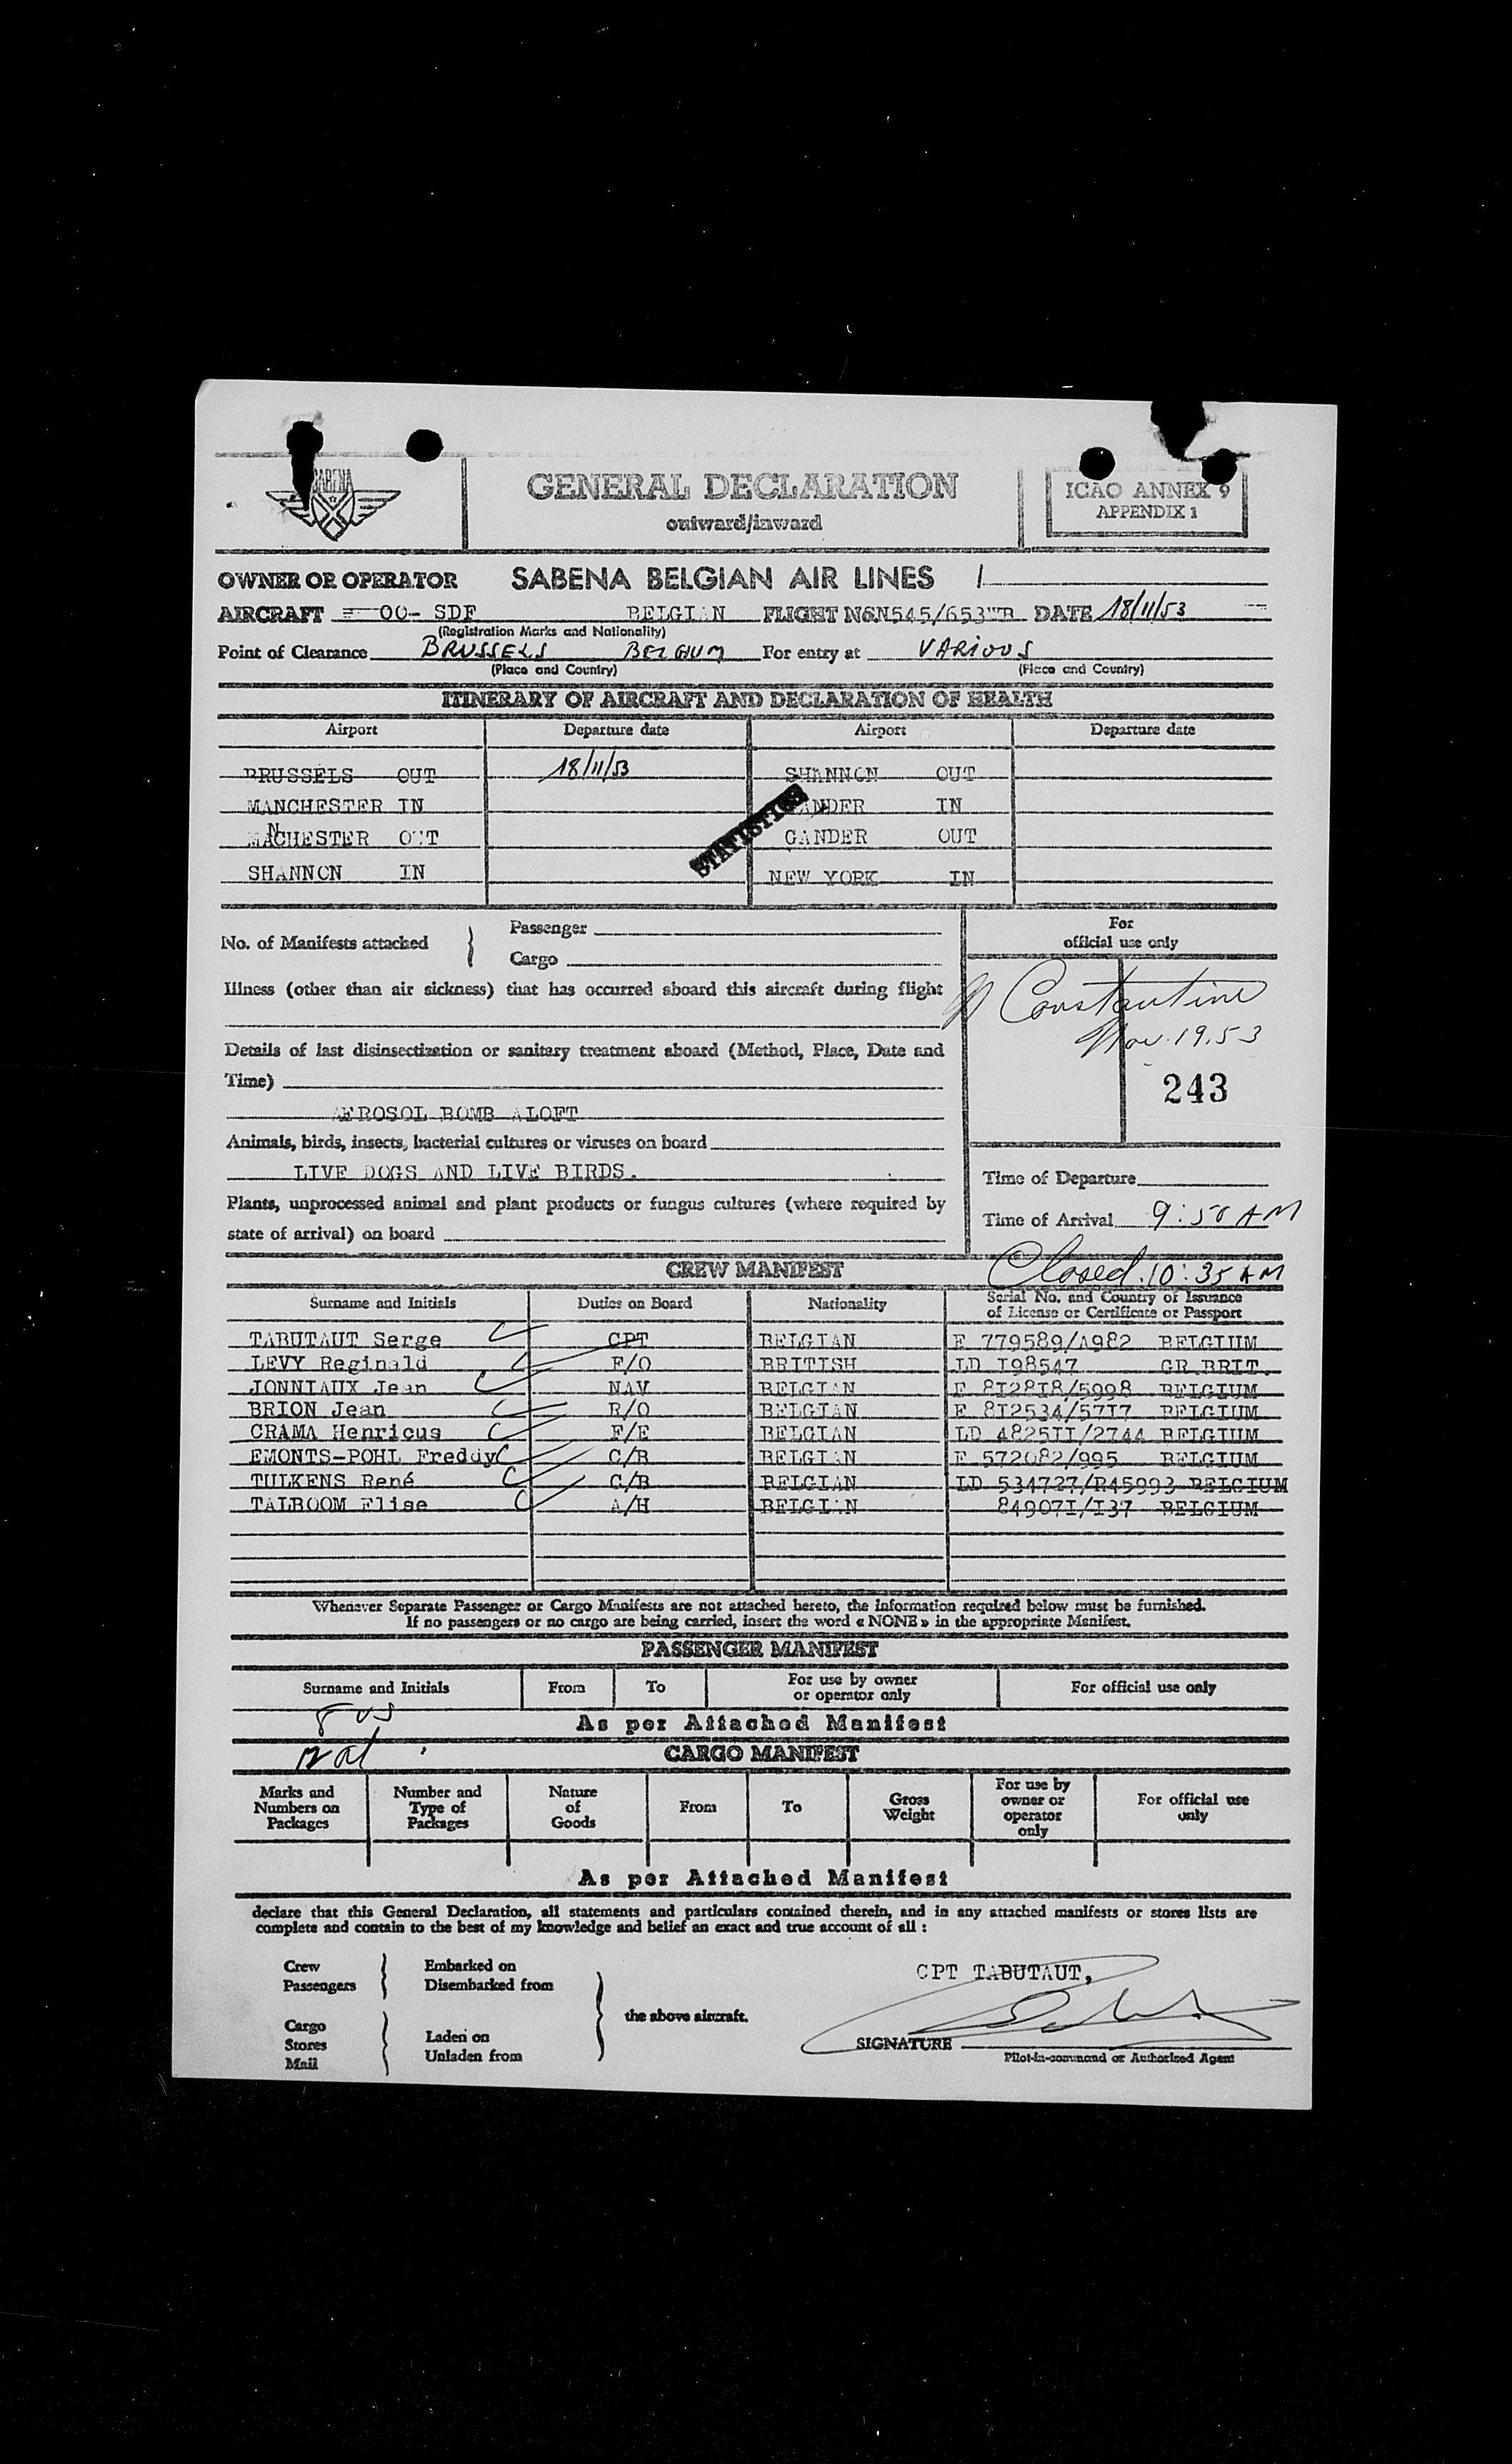 SABENA
GENERAL DECLARATION
outward/inward
ICAO ANNEX 9
APPENDIX 1
OWNER OR OPERATOR SABENA BELGIAN AIR LINES
AIRCRAFT OO- SDF BELGIAN FLIGHT No SN545/653 DATE 18/11/53
(Registration Marks and Nationality)
Point of Clearance BRUSSELS BELGIUM For entry at VARIOUS
(Place and Country) (Place and Country)
ITINERARY OF AIRCRAFT AND DECLARATION OF HEALTH
Airport Departure date Airport Departure date
BRUSSELS OUT 18/11/53 SHANNON OUT
MANCHESTER IN GANDER IN
MANCHESTER OUT GANDER OUT
SHANNON IN NEW YORK IN
STATISTICS
No. of Manifests attached } Passenger
Cargo
For
official use only
Illness (other than air sickness) that has occurred aboard this aircraft during flight
Constantine
Nov. 19. 53
243
Details of last disinsectization or sanitary treatment aboard (Method, Place, Date and
Time)
AEROSOL BOMB ALOFT
Animals, birds, insects, bacterial cultures or viruses on board
LIVE DOGS AND LIVE BIRDS.
Plants, unprocessed animal and plant products or fungus cultures (where required by
state of arrival) on board
Time of Departure
Time of Arrival 9:50 AM
Closed. 10:35 AM
CREW MANIFEST
Surname and Initials Duties on Board Nationality Serial No. and Country of Issuance
of License or Certificate or Passport
TABUTAUT Serge CPT BELGIAN E 779589/A982 BELGIUM
LEVY Reginald F/O BRITISH LD I98547 GR.BRIT.
JONNIAUX Jean NAV BELGIAN E 8I28I8/5998 BELGIUM
BRION Jean R/O BELGIAN E 8I2534/57I7 BELGIUM
CRAMA Henricus F/E BELGIAN LD 4825II/2744 BELGIUM
EMONTS-POHL Freddy C/B BELGIAN E 572082/995 BELGIUM
TULKENS René C/B BELGIAN LD 534727/R45993 BELGIUM
TALBOOM Elise A/H BELGIAN 84907I/I37 BELGIUM
Whenever Separate Passenger or Cargo Manifests are not attached hereto, the information required below must be furnished.
If no passengers or no cargo are being carried, insert the word « NONE » in the appropriate Manifest.
PASSENGER MANIFEST
Surname and Initials From To For use by owner
or operator only For official use only
As per Attached Manifest
CARGO MANIFEST
Marks and
Numbers on
Packages Number and
Type of
Packages Nature
of
Goods From To Gross
Weight For use by
owner or
operator
only For official use
only
As per Attached Manifest
declare that this General Declaration, all statements and particulars contained therein, and in any attached manifests or stores lists are
complete and contain to the best of my knowledge and belief an exact and true account of all :
Crew
Passengers } Embarked on
Disembarked from
Cargo
Stores
Mail } Laden on
Unladen from
} the above aircraft.
CPT TABUTAUT,
SIGNATURE
Pilot-in-command or Authorized Agent